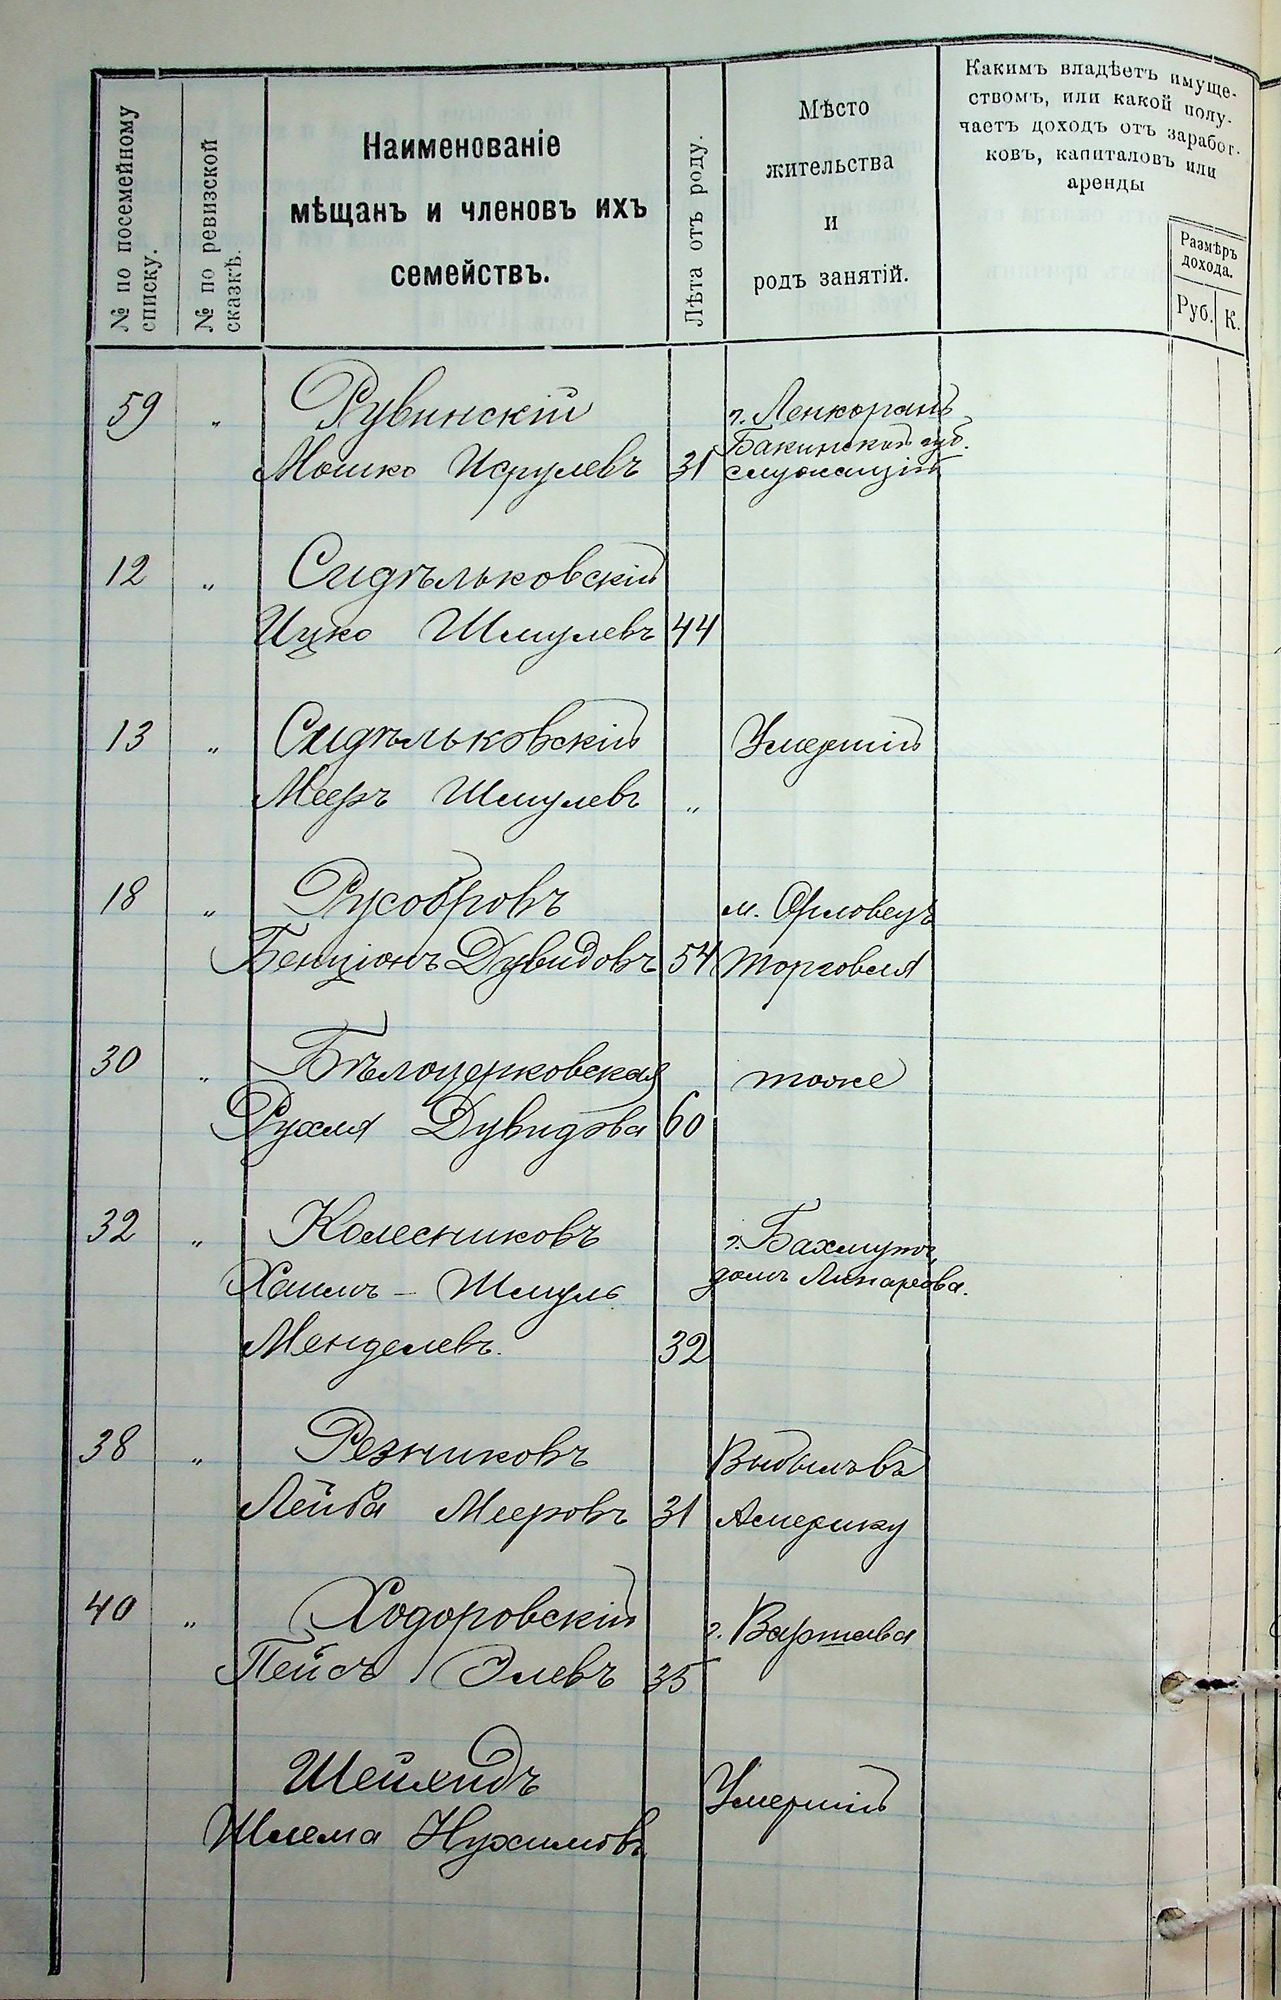 № по посемейному
списку.
№ по ревизской
сказкѣ.
Наименованіе
мѣщанъ и членовъ ихъ
семействъ.
Лѣта отъ роду.
Мѣсто
жительства
и
родъ занятій.
Какимъ владѣетъ имуще-
ствомъ, или какой полу-
чаетъ доходъ отъ заработ-
ковъ, капиталовъ или
аренды
Размѣръ
дохода.
Руб. К.
59 " Рувинскій г. Ленкорань
Бакинской губ.
Мошко Исрулевъ 31 служащій
12 " Сидѣльковскій
Ицко Шмулевъ 44
13 " Сидѣльковскій Умершій
Мееръ Шмулевъ "
18 " Русобровъ м. Орловецъ
Бенціонъ Дувидовъ 54 торговля
30 " Бѣлоцерковская тоже
Рухля Дувидова 60
32 " Колесниковъ г. Бахмутъ,
Хаимъ - Шмуль домъ
Менделевъ. 32
38 " Резниковъ Выбылъ въ
Лейба Мееровъ 31 Америку
40 " Ходоровскій г. Варшава
Пейсъ Элевъ 35
Шейхидъ Умершій
Шлема Нухимовъ